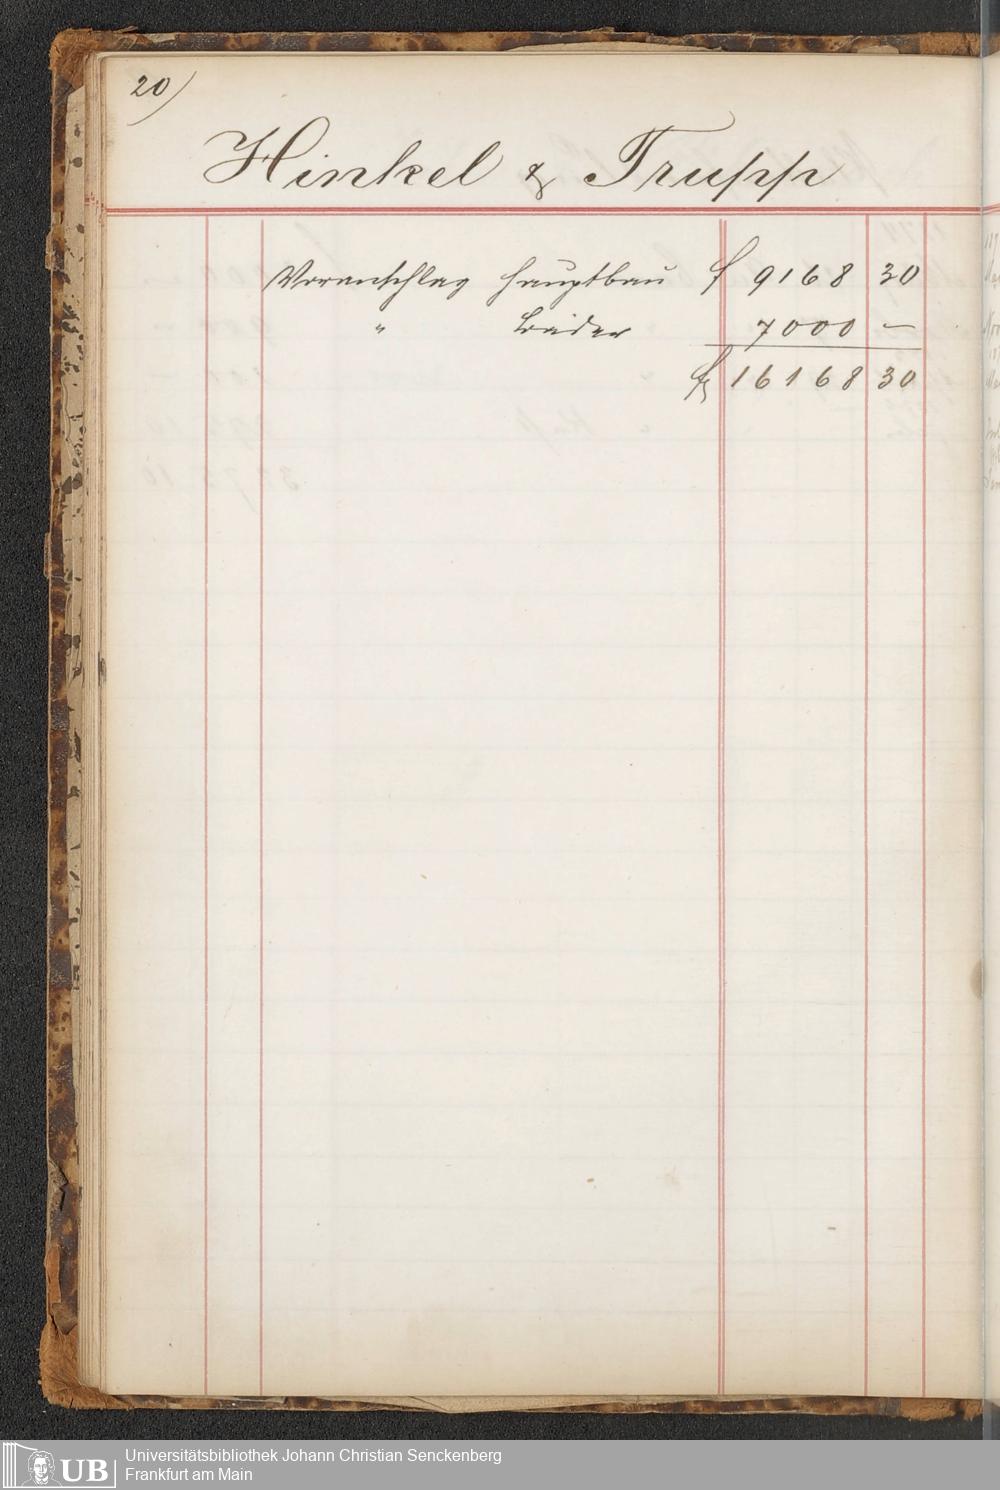 20)
Hinkel & Trupp
Voranschlag Hauptbau f 9168 30
" Bäder 7000 —
f 16168 30
UB Universitätsbibliothek Johann Christian Senckenberg
Frankfurt am Main